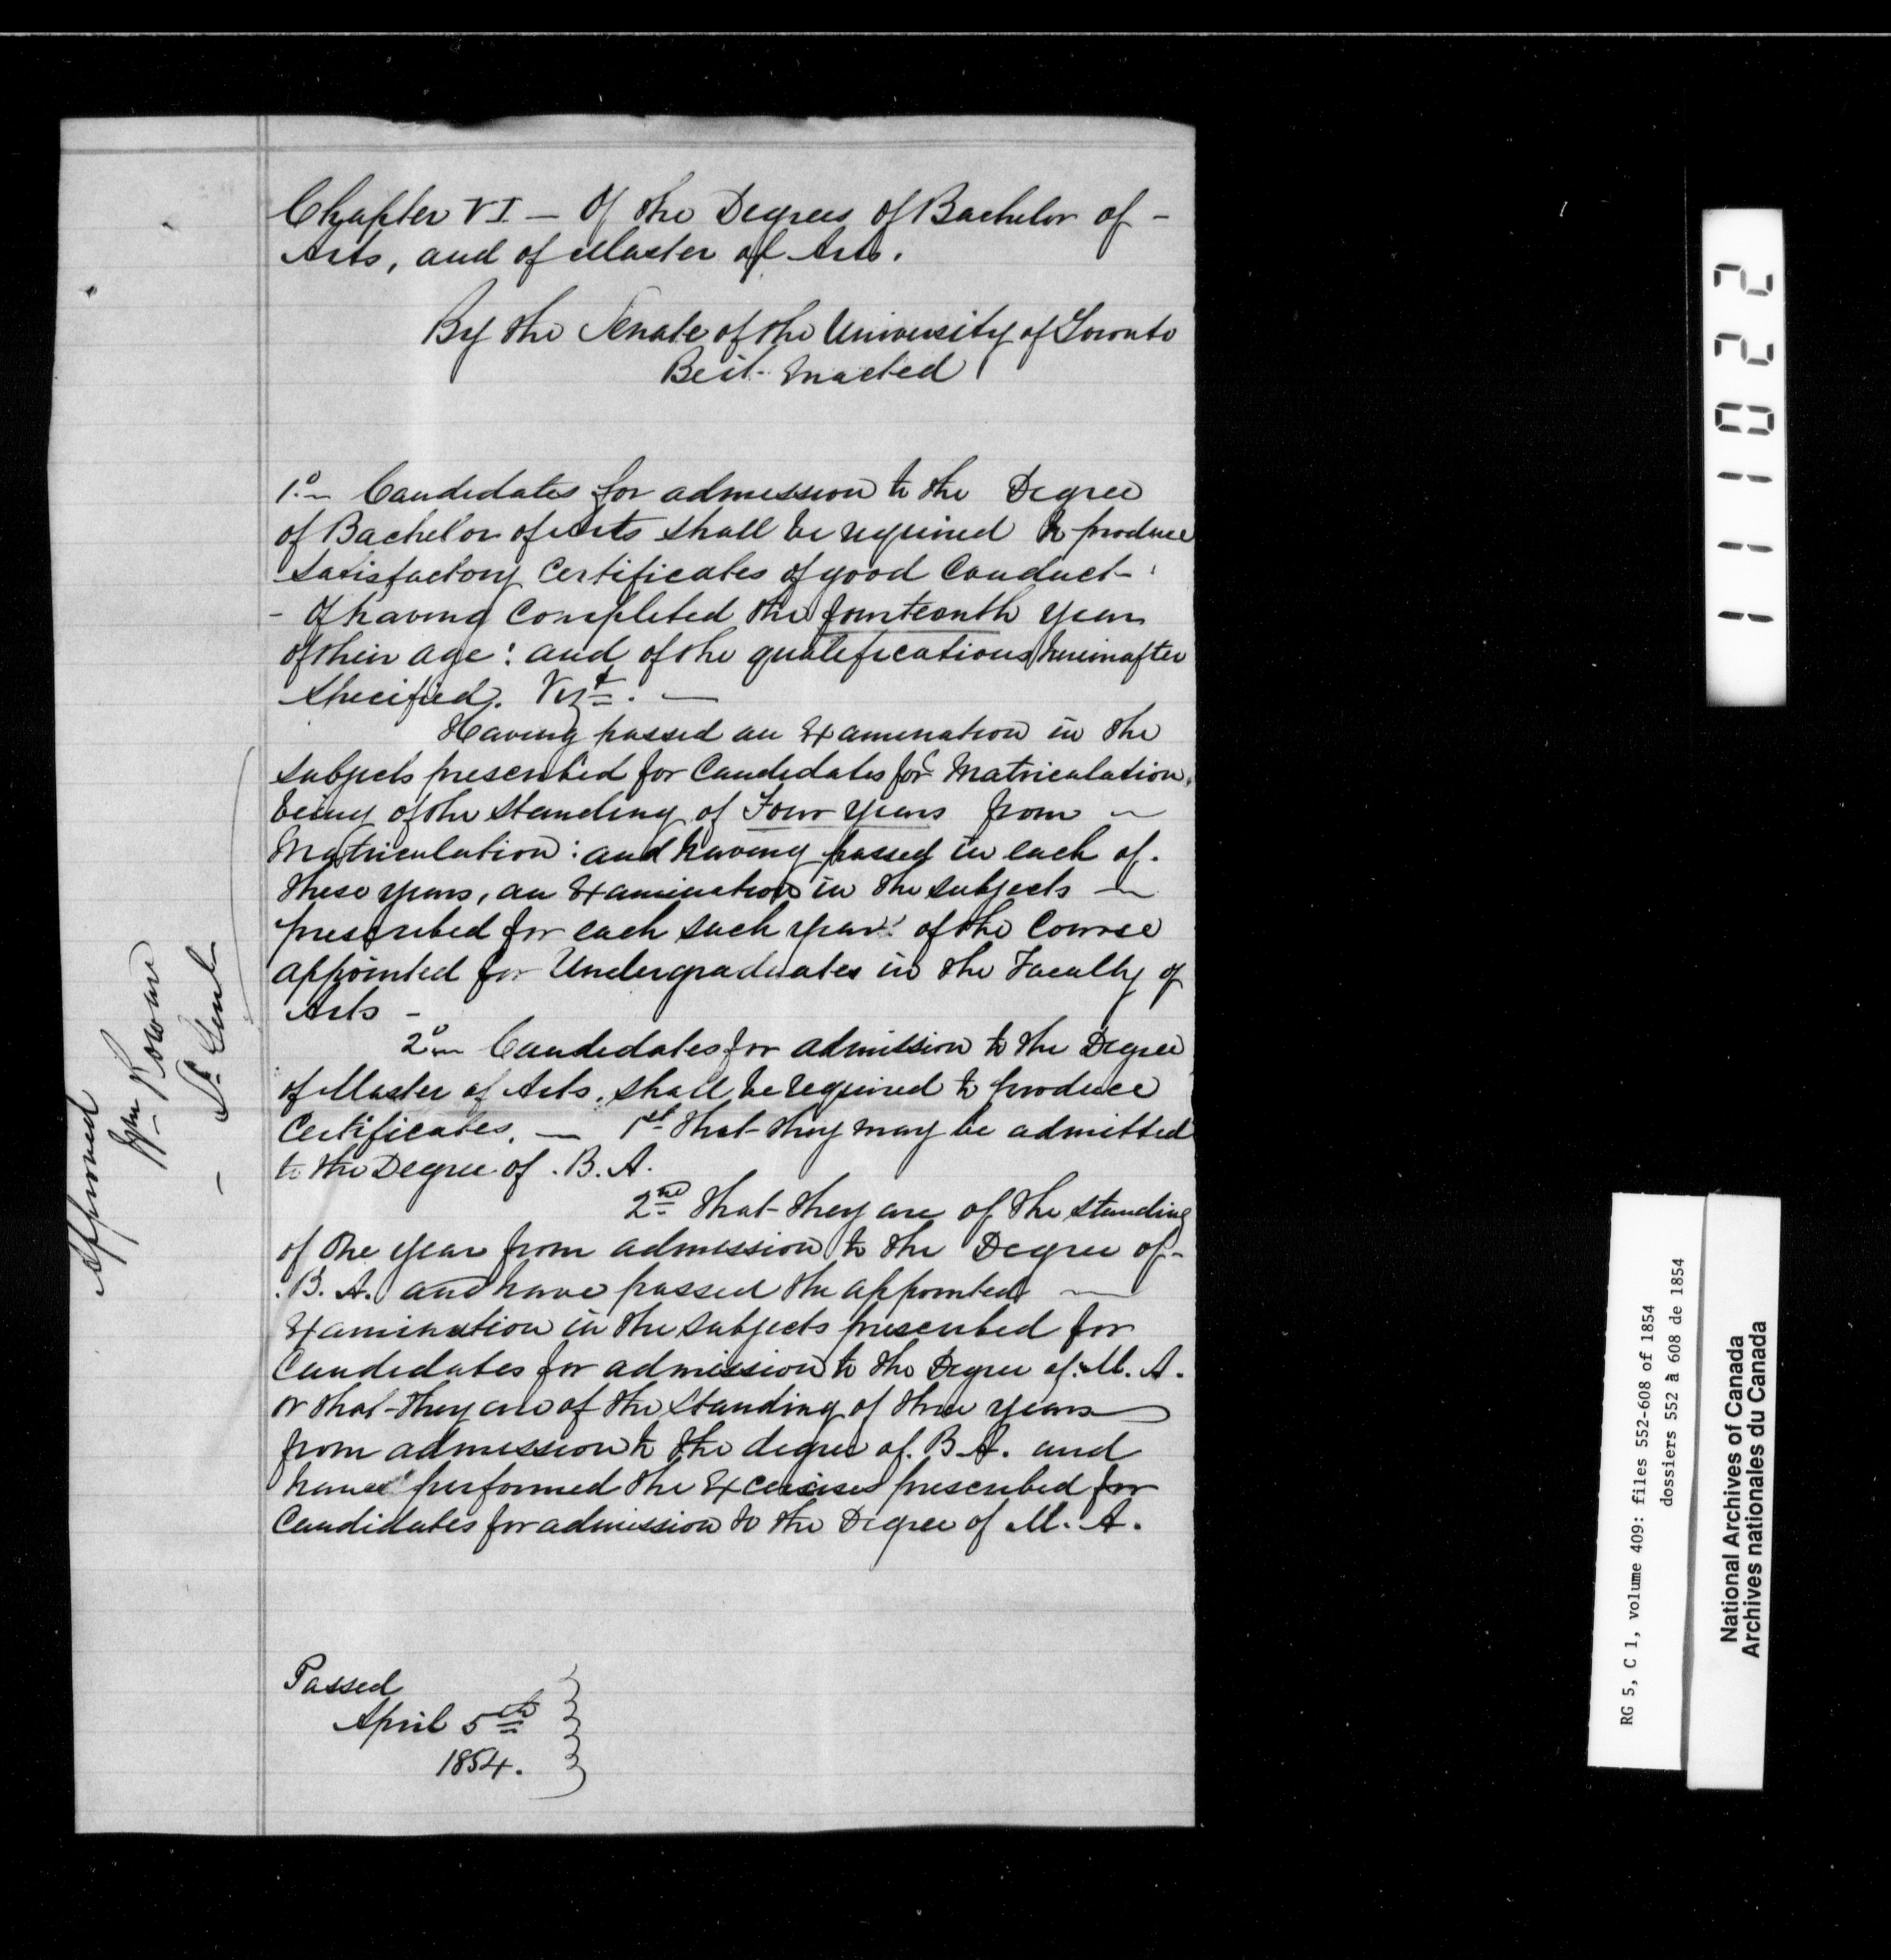 Chapter VI — Of the Degrees of Bachelor of -
Arts, and of Master of Arts.
By the Senate of the University of Toronto
Be it Enacted
1.o Candidates for admission to the Degree
of Bachelor of Arts shall be required to produce
satisfactory Certificates of good Conduct- :
- Of having Completed the fourteenth year
of their age : and of the qualifications hereinafter
specified. Vizt. —
Having passed an Examination in the
subjects prescribed for Candidates for Matriculation,
being of the standing of Four years from ~
Matriculation : and having passed in each of.
these years, an Examination in the subjects ~
prescribed for each such year: of the Course
appointed for Undergraduates in the Faculty of
Arts -
2.o Candidates for admission to the Degree
of Master of Arts, shall be required to produce
Certificates. — 1st that they may be admitted
to the Degree of . B. A.
2nd that they are of the standing
of One year from admission to the Degree of -
. B. A. and have passed the appointed ~
Examination in the subjects prescribed for
Candidates for admission to the Degree of. M. A.
or that they are of the Standing of three years
from admission to the degree of. B.A. and
have performed the Exercises prescribed for
Candidates for admission to the Degree of M. A.
Passed
April 5th
1854.
Approved
Wm Rowan
Lt Genl
111022
RG 5, C 1, volume 409: files 552-608 of 1854
dossiers 552 à 608 de 1854
National Archives of Canada
Archives nationales du Canada